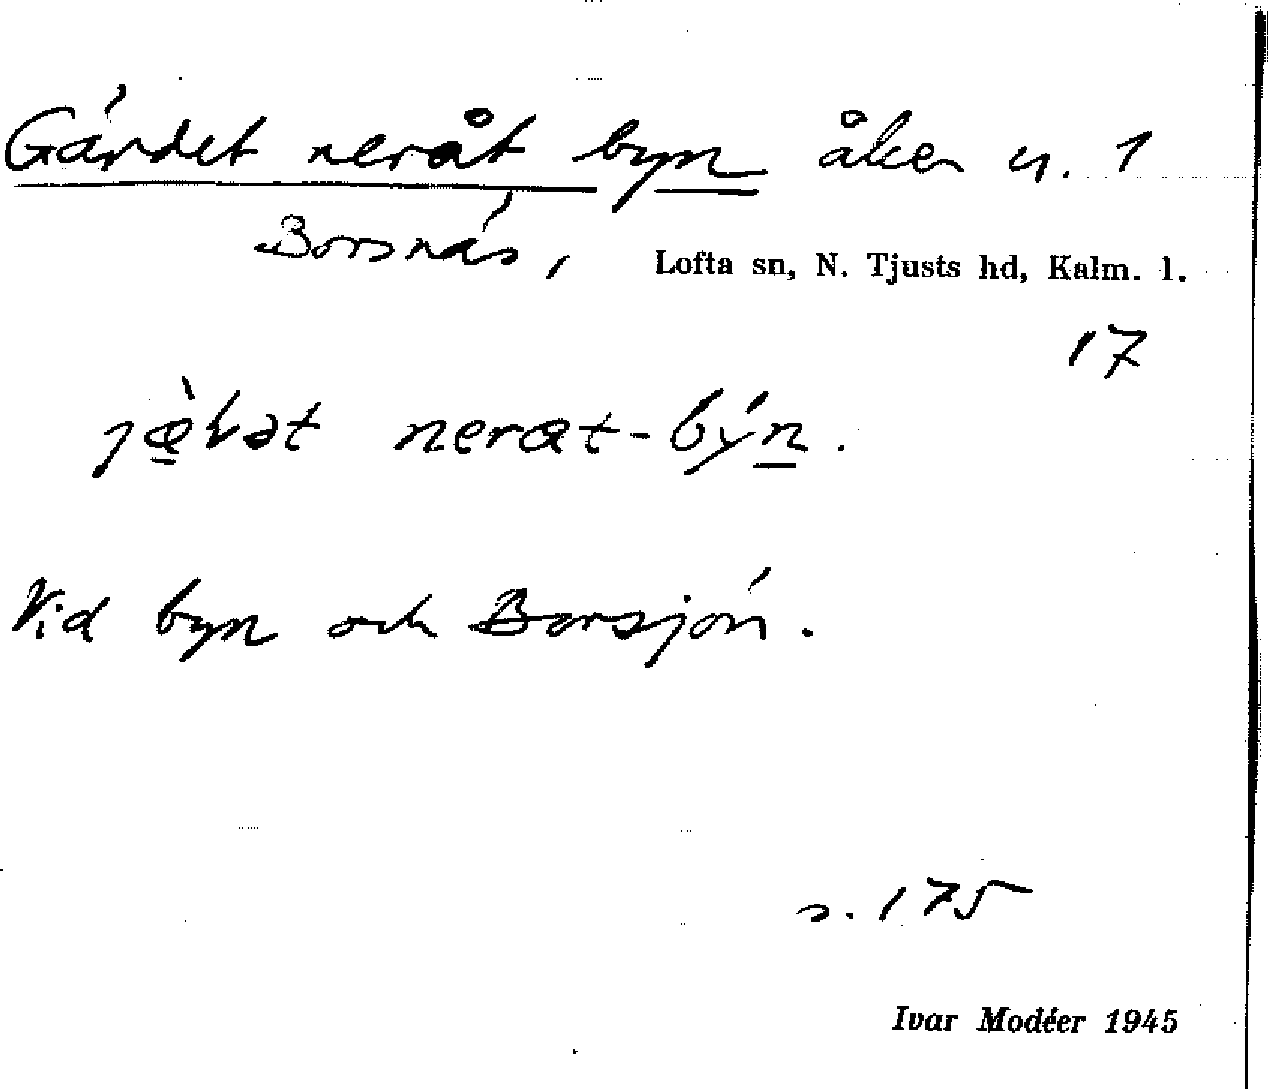 Gärdet neråt byn åker n. 1
Borsnäs, Lofta sn, N. Tjusts hd, Kalm. l.
17
neråt-býn.
Vid byn och Borsjön.
s. 175
Ivar Modéer 1945